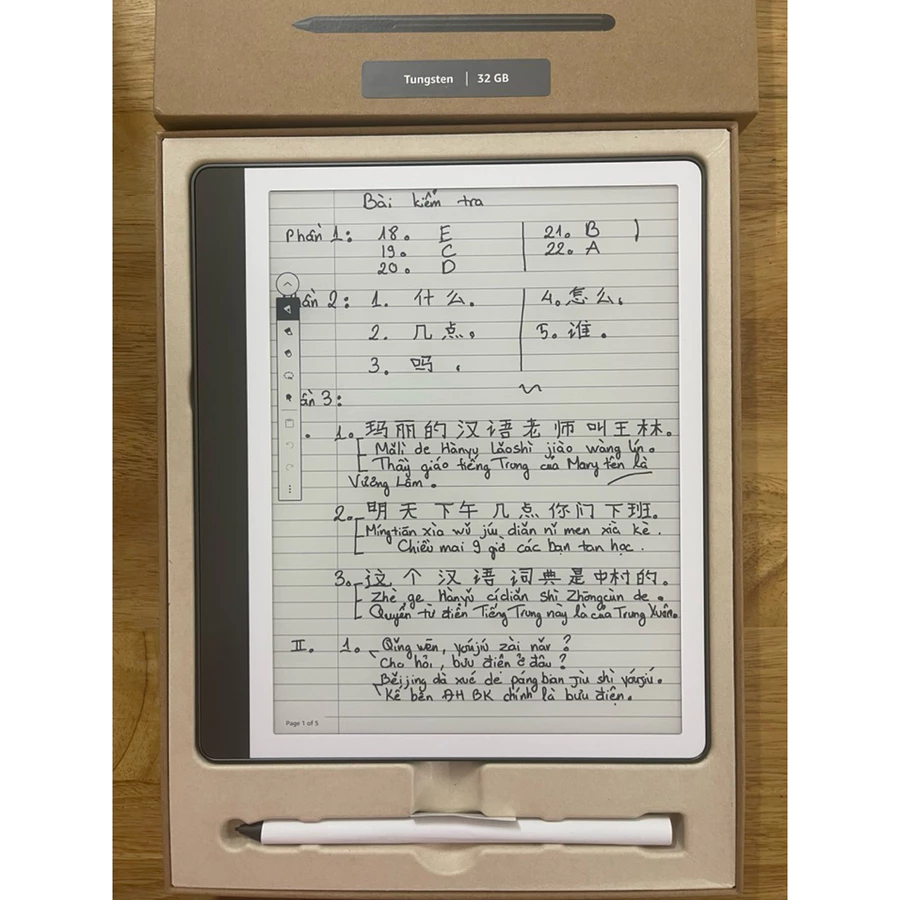 Tungsten | 32 GB
Bài kiểm tra
Phần 1: 18. E 21. B
19. C 22. A
20. D
ần 2: 1. 什么. 4. 怎么.
2. 几点. 5. 谁.
3. 吗.
ần 3:
1. 玛丽的汉语老师叫王林.
Mǎlì de Hànyu lǎoshì jiào wàng lín.
Thầy giáo tiếng Trung của Mary tên là
Vương Lâm.
2. 明天下午几点你们下班.
Míngtiān xìa wǔ jǐu diǎn nǐ men xià kè.
Chiều mai 9 giờ các bạn tan học.
3. 这个汉语词典是中村的.
Zhè ge Hànyǔ cídiǎn shì Zhōngcūn de.
Quyển từ điển Tiếng Trung này là của Trung Xuân.
II. 1. Qǐng wēn, yóujú zài nǎr?
Cho hỏi, bưu điện ở đâu?
Běijing dà xué de páng ban jìu shì yóujú.
Kế bên ĐH BK chính là bưu điện.
Page 1 of 5